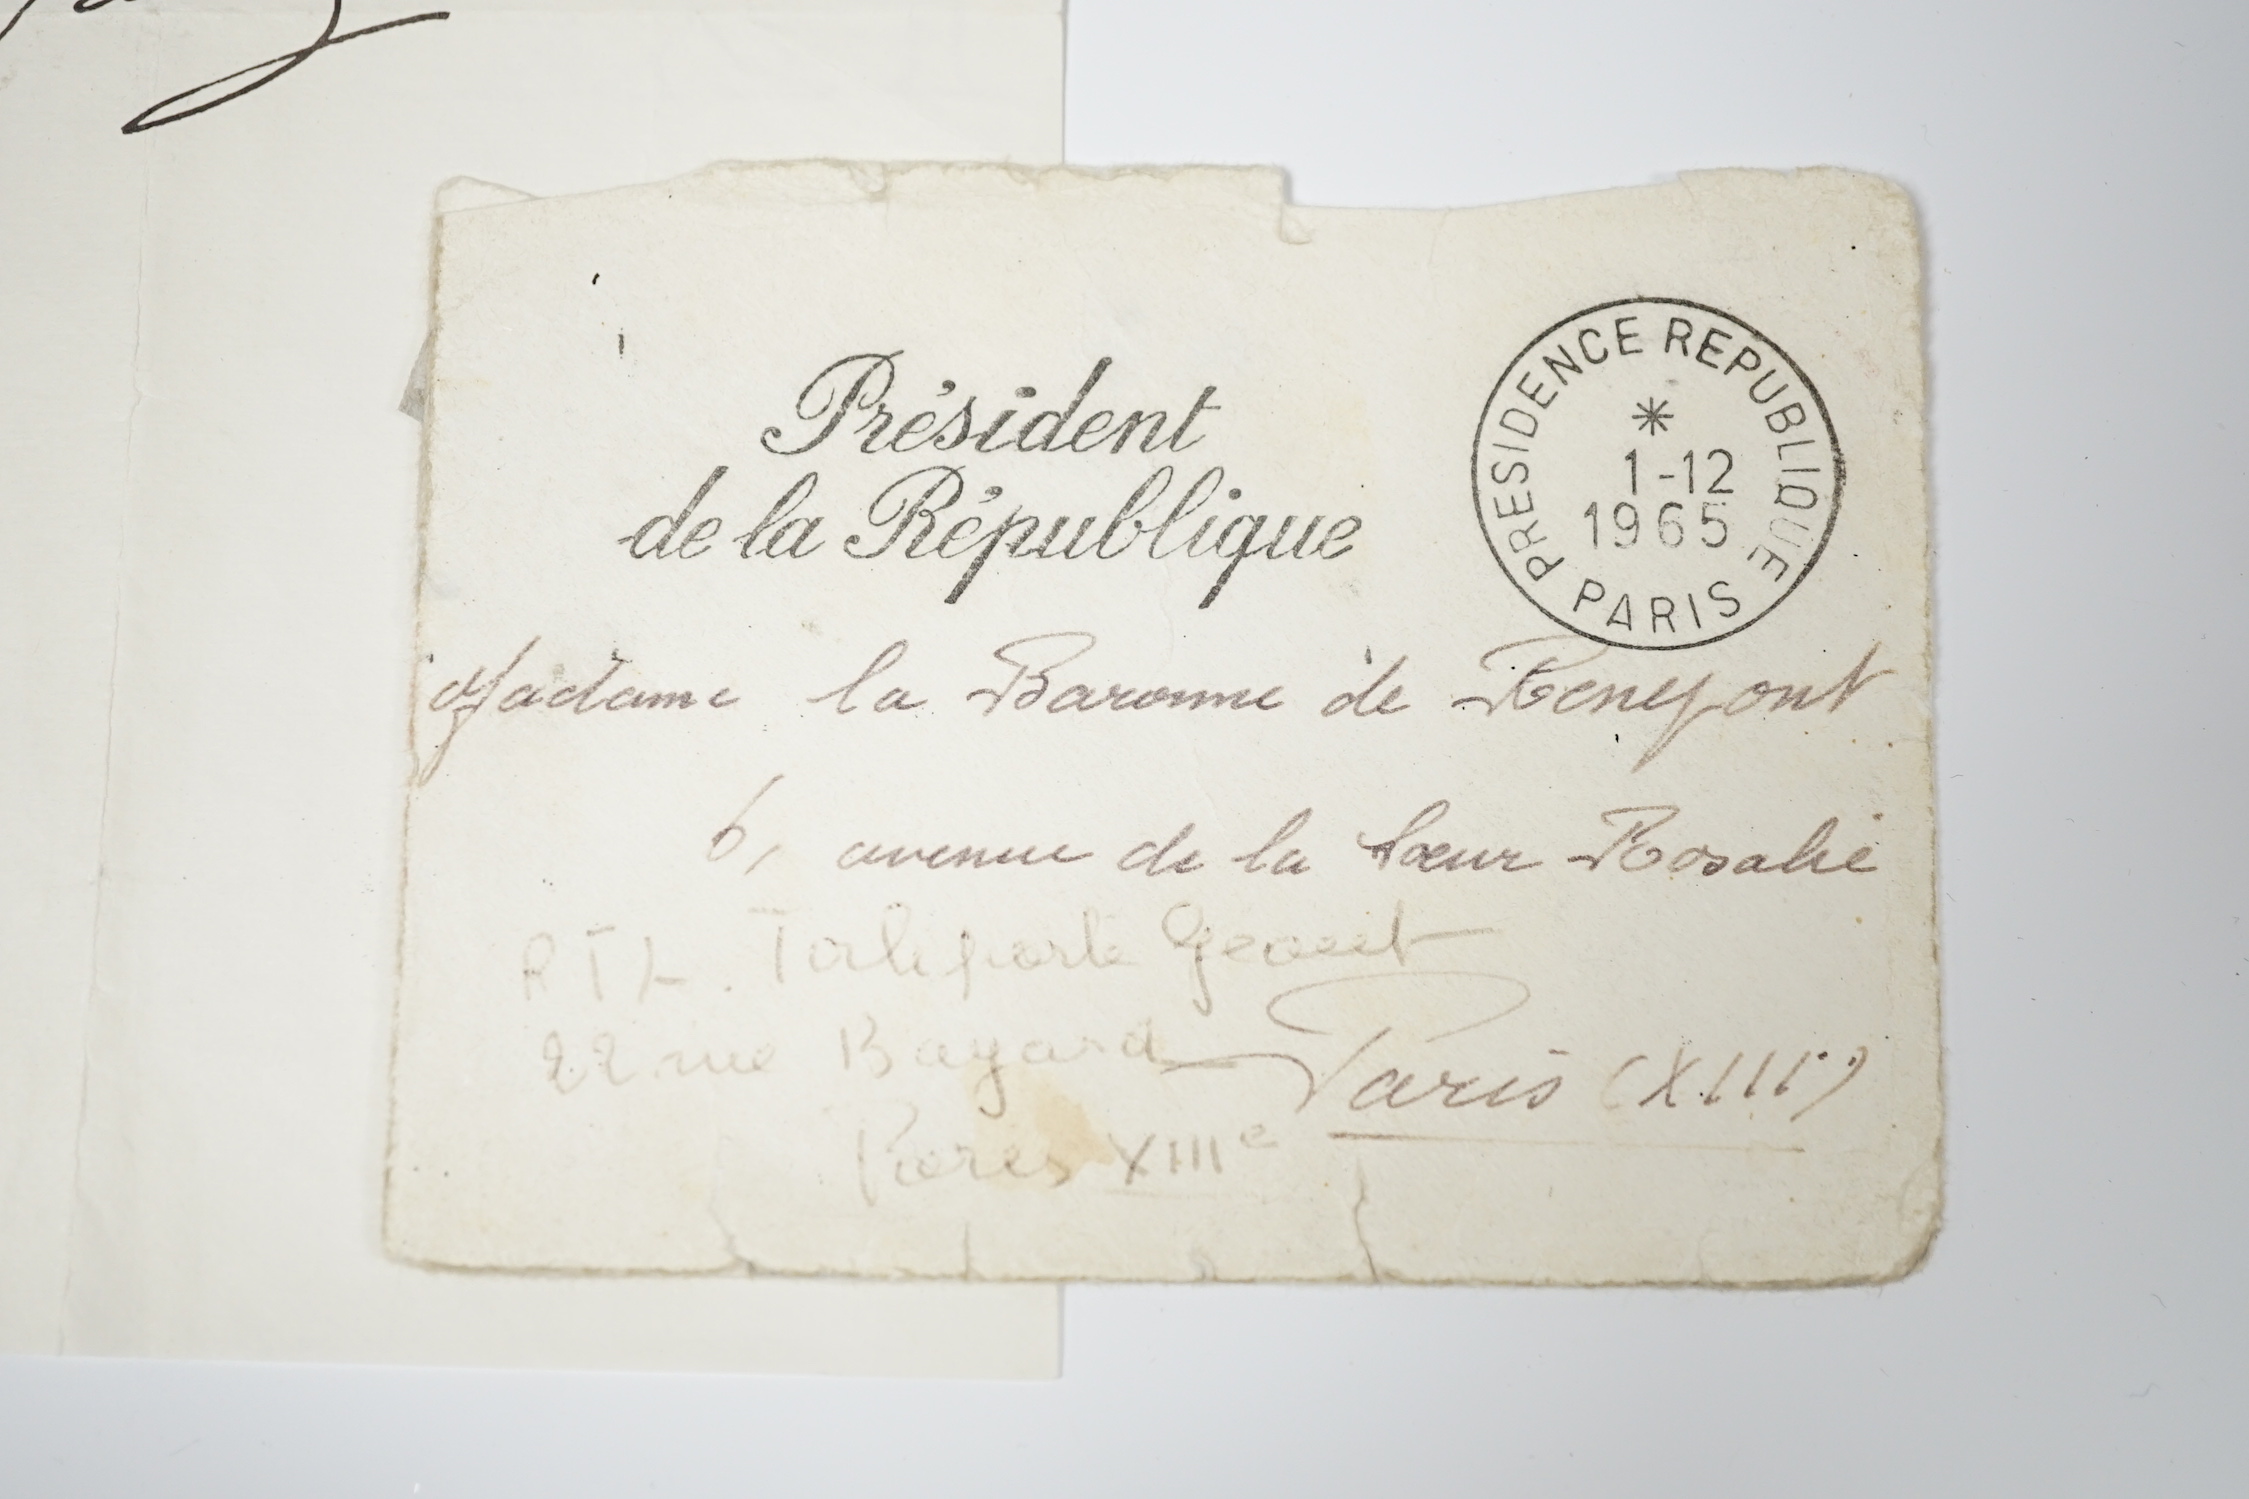 Président
de la République
PRESIDENCE REPUBLIQUE
1-12
1965
PARIS
Madame la Baronne de
6, avenue de la Sœur Rosalie
RTL.
22 rue Bayard
Paris (XIIIe)
Paris XIIIe